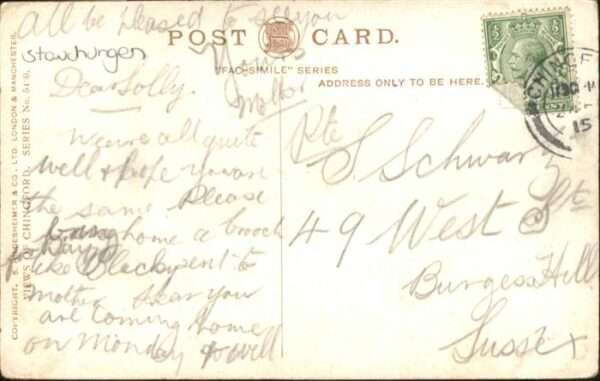 all be pleased to see you
Yours
Stowhurgen
POST CARD.
"FAC-SIMILE" SERIES
ADDRESS ONLY TO BE HERE.
Dear Solly.
We are all quite
well & hope you are
the same. Please
bring home a brooch
for Daisy
like Blackpent to
mother I hear you
are coming home
on Monday & will
Pte
S. Schwarz
49 West St
Burgess Hill
Sussex
CHINGF
15
COPYRIGHT. & CO., LTD. LONDON & MANCHESTER.
VIEWS OF CHINGFORD. SERIES No.